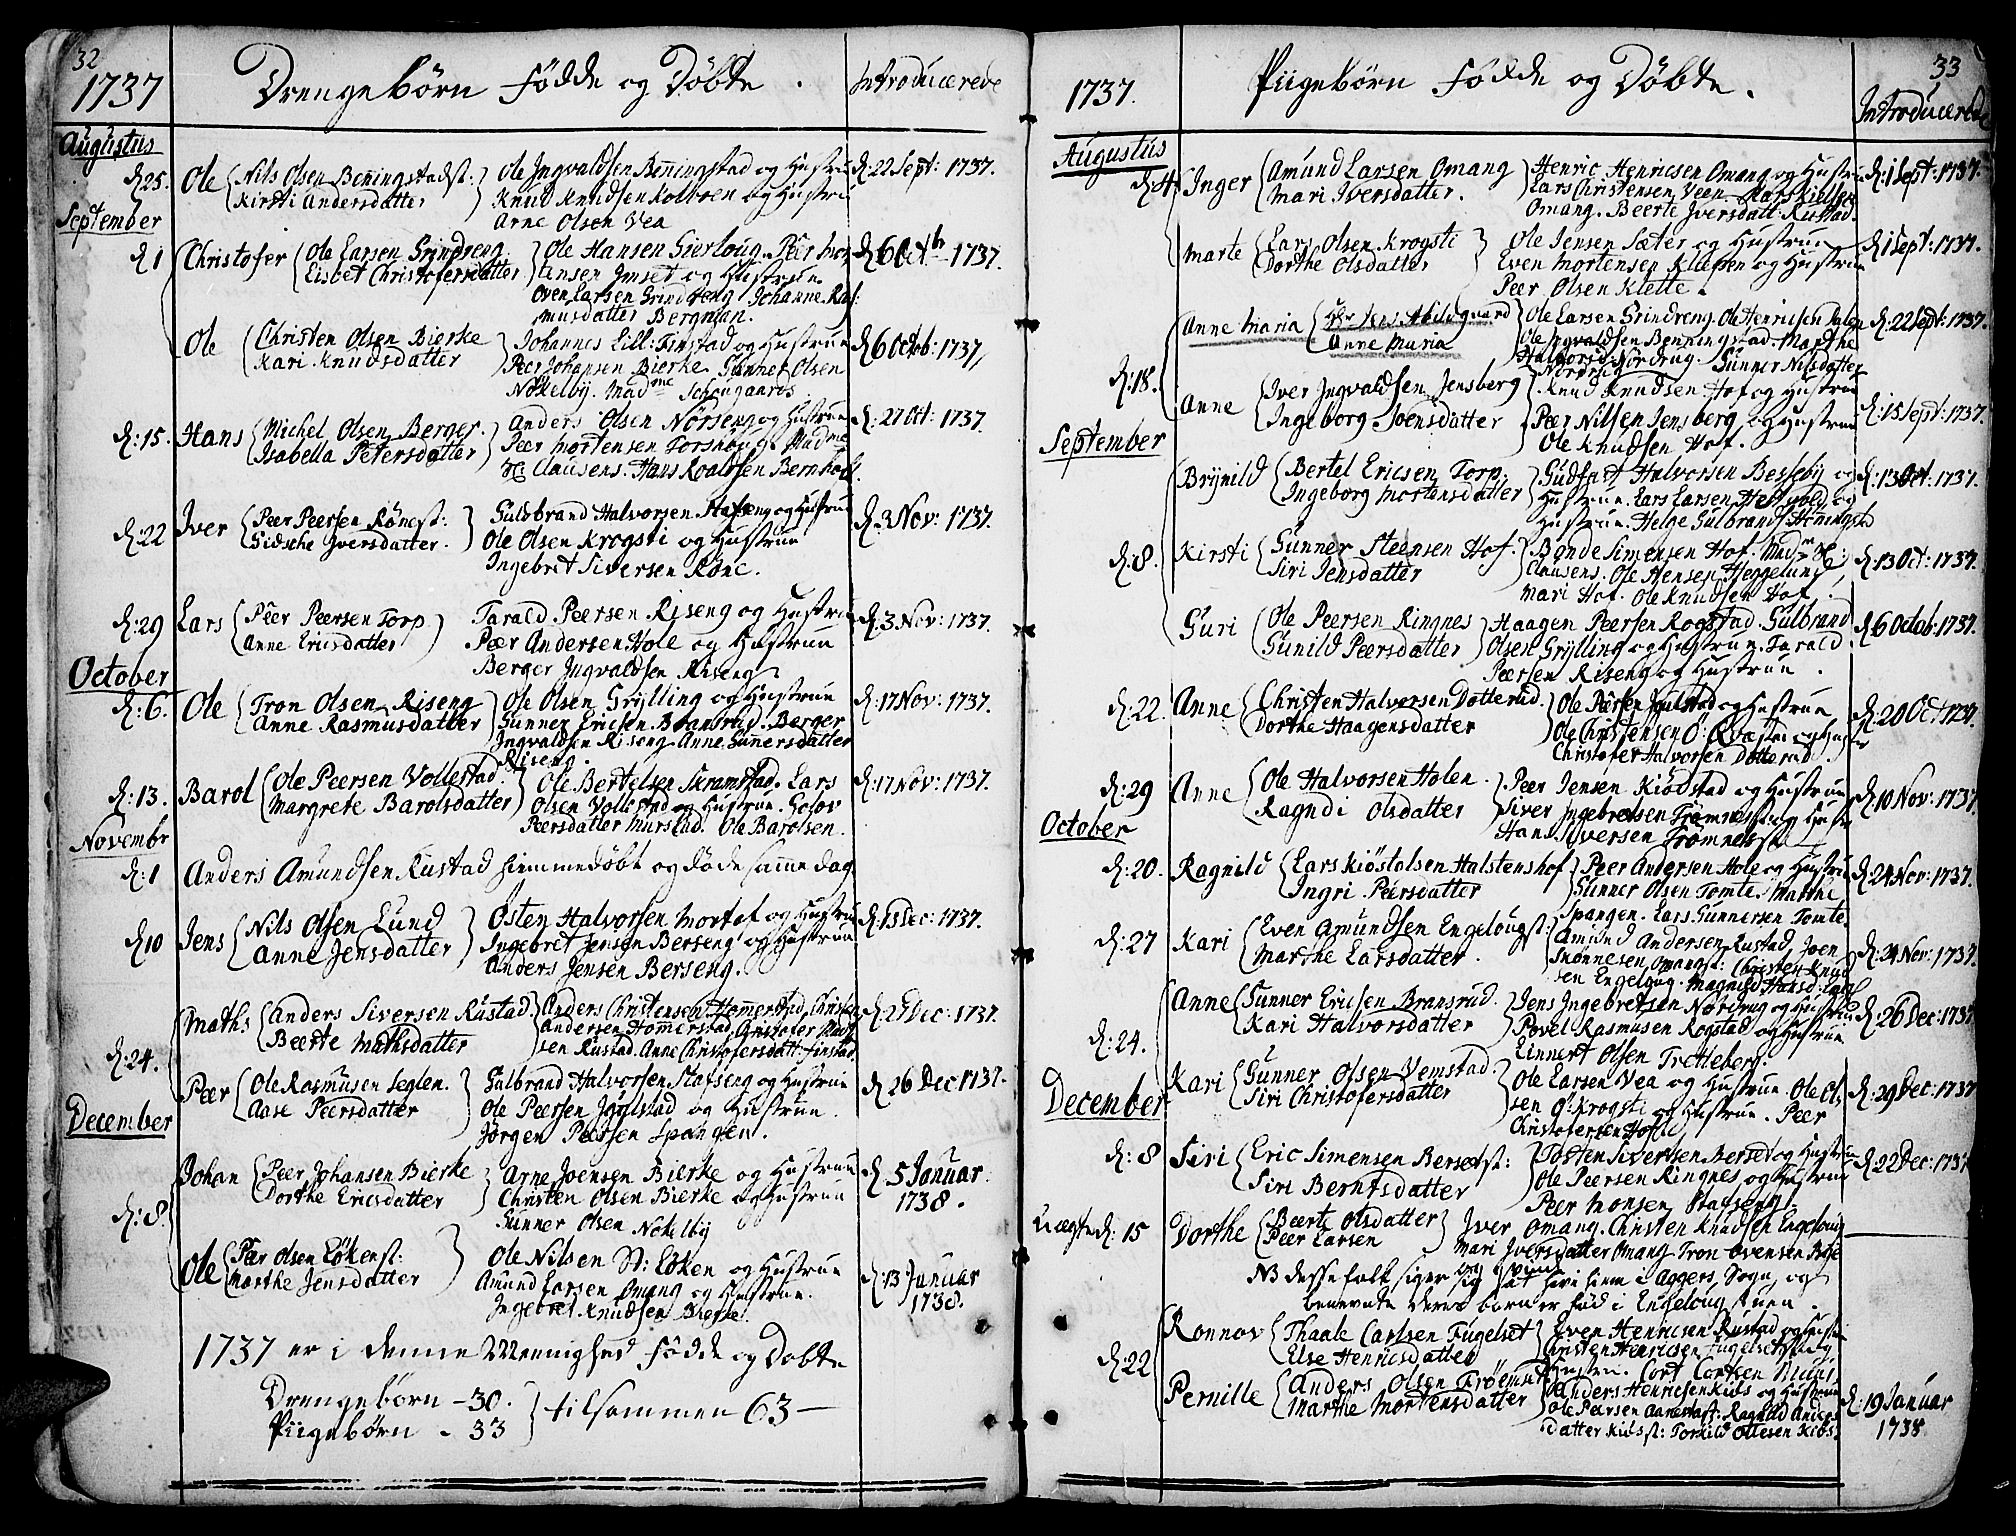 32
1737
Drengebörn Födde og Döbte.
Introducerede
Augustus
d: 25.
Ole
Nils Olsen Benningstadst:
Kirsti Andersdatter
Ole Ingvaldsen Benningstad og Hustru
Knud Knudsen Kolbren og Hustru
Arne Olsen Vea
d: 22 Sept: 1737.
September
d: 1
Christofer
Ole Larsen Grindreng
Lisbet Christofersdatter
Ole Hansen Gierloug. Peer Mor
tensen Imset og Hustrue.
Oven Larsen Grindreng Johanne Ras
musdatter Bergman.
d: 6 Octbr 1737.
Ole
Christen Olsen Bierke
Kari Knudsdatter
Johannes Lill: Finstad og Hustrue
Peer Johansen Bierke. Gunner Olsen
Nökelby. Madme Schougaards
d: 6 Octob: 1737,
d: 15.
Hans
Michel Olsen Berger.
Isabella Petersdatter
Anders Olsen Nörseng og Hustrue
Peer Mortensen Torshoug. Madme
Hr: Clausens. Hans Roaldsen Bernhoft.
d: 27 Oct: 1737.
d: 22
Iver
Peer Peersen Rönest:
Sidsche Iversdatter.
Gulbrand Halvorsen Stafseng og Hustrue
Ole Olsen Krogsti og Hustrue
Ingebret Siversen Röne.
d: 3 Nov: 1737.
d: 29
Lars
Peer Peersen Torp
Anne Ericsdatter
Tarald Peersen Riseng og Hustrue
Peer Andersen Hole og Hustrue
Berger Ingvaldsen Riseng
d: 3 Nov: 1737.
October
d: 6.
Ole
Tron Olsen Riseng
Anne Rasmusdatter
Ole Olsen Grylling og Hustrue
Gunner Ericsen Bransrud. Berger
Ingvaldsen Riseng Anne Gunnersdatter
Riseng.
d: 17 Nov: 1737.
d: 13.
Barol
Ole Peersen Vollestad.
Margrete Barolsdatter
Ole Bertelsen Skramstad. Lars
Olsen Vollestad og Hustrue. Golov
Peersdatter Murstad. Ole Barolsen.
d: 17 Nov: 1737.
Novembr
d: 1
Anders Amundsen Rustad Hiemmedöbt og döde samme dag
d: 10
Jens
Nils Olsen Lund
Anne Jensdatter
Osten Halvorsen Mortof og Hustrue
Ingebret Jensen Berseng og Hustrue
Anders Jensen Berseng.
d: 13 Dec: 1737.
Maths
Anders Siversen Rustad
Beerte Mathsdatter
Anders Christensen Hommerstad, Christen
Andersen Hommerstad. Christofer Math
sen Rustad. Anne Christofersdatt: Finstad
d: 27 Dec: 1737.
d: 24.
Peer
Ole Rasmusen Seglen.
Aase Peersdatter
Gulbrand Halvorsen Stafseng og Hustrue
Ole Peersen Jgylstad og Hustrue.
Jörgen Peersen Spangen.
d: 26 Dec 1737.
December
Johan
Peer Johansen Bierke
Dorthe Ericsdatter
Arne Joensen Bierke og Hustrue
Christen Olsen Bierke og Hustrue
Gunner Olsen Nökelby
d: 5 Januar.
1738.
d: 8.
Ole
Peer Olsen Lökenst:
Marthe Jensdatter
Ole Nilsen St: Löken og Hustrue
Amund Larsen Omang og Hustrue.
Ingebret Knudsen Bierke.
d: 13 Januar
1738.
1737 er i denne Mennighed Födde og Döbte
Drengebörn - 30.
Piigebörn - 33
tilsammen 63 -
33
1737.
Piigebörn Födde og Döbte.
Introducerede
Augustus
d: 4
Inger
Amund Larsen Omang
Mari Iversdatter.
Henric Henricsen Omang og Hustrue
Lars Christensen Veen. Lars Kielsen
Omang. Beerte Iversdatt: Rustad.
d: 1 Sept: 1737.
Marte
Lars Olsen Krogsti
Dorthe Olsdatter
Ole Jensen Sæter og Hustrue
Even Mortensen Kletten og Hustrue
Peer Olsen Klette.
d: 1 Sept: 1737.
Anne Maria
Hr Jens Abildgaard
Anne Maria
Ole Larsen Grindreng. Ole Henricsen Dalen
Ole Ingvaldsen Benningstad. Marthe
Halvorsd: Nordrug. Gunner Nilsdatter
Nordrug
d: 22 Sept: 1737.
d: 18.
Anne
Iver Ingvaldsen Jensberg
Ingeborg Joensdatter
Knud Knudsen Hof og Hustrue
Peer Nilsen Jensberg og Hustrue
Ole Knudsen Hof.
d: 15 Sept: 1737.
September
Brynild
Bertel Ericsen Torp.
Ingeborg Mortensdatter
Gudfast Halvorsen Besseby og
Hustrue. Lars Larsen Hestvold og
Hustrue. Helge Gulbrands Honningst
d: 13 Oct: 1737.
d: 8.
Kirsti
Gunner Steensen Hof.
Siri Jensdatter
Bonde Simensen Hof. Madme Hr:
Clausens. Ole Hensen Heggelund,
Mari Hof. Ole Knudsen Hof.
d: 13 Oct: 1737.
Guri
Ole Peersen Ringnes
Gunild Peersdatter
Haagen Peersen Rogstad. Gulbrand
Olsen Grylling og Hustrue. Tarald
Peersen Riseng og Hustrue.
d: 6 Octob: 1737.
d: 22.
Anne
Christen Halvorsen Dotterud.
Dorthe Haagensdatter
Ole Peersen Jgulstad og Hustrue
Ole Christensen Ö: Qvæstu og Hustrue
Christofer Halvorsen Dotterud.
d: 20 Oct 1737.
d: 29
Anne
Ole Halvorsen Holen.
Ragndi Olsdatter
Peer Jensen Kiödstad og Hustrue
Siver Ingebretsen Trömnest og Hustr
Hans Iversen Trömnest.
d: 10 Nov: 1737.
October
d: 20.
Ragnild
Lars Kiöstolsen Halstenshof
Ingri Peersdatter
Peer Andersen Hole og Hustrue
Gunner Olsen Tomte. Marthe
Spangen. Lars Gunnersen Tomte.
d: 24 Nov: 1737.
d: 27
Kari
Even Amundsen Engelougst:
Marthe Larsdatter.
Amund Andersen Rustad, Joen
Tronnesen Omangst: Christen Knud
sen Engeloug. Magnild Hansd:
d: 24 Nov: 1737.
Anne
Gunner Ericsen Bransrud.
Kari Halvorsdatter
Jens Ingebretsen Nordrug og Hustrue
Povel Rasmusen Rogstad og Hustrue
Linnert Olsen Tretteberg.
d: 26 Dec: 1737.
d: 24.
Kari
Gunner Olsen Vemstad.
Siri Christofersdatter
Ole Larsen Vea og Hustrue. Ole Ol,
sen Ö: Krogsti og Hustrue. Peer
Christofersen Hof
d: 29 Dec: 1737
December
d: 8
Siri
Eric Simensen Bersedst:
Siri Berntsdatter
Tosten Siversen Berset og Hustrue
Ole Peersen Ringnes og Hustrue
Peer Monsen Stafseng
d: 22 Dec: 1737
d: 15
Dorthe
Beerte Olsdatter
Peer Larsen
Iver Omang. Christen Knudsen Engeloug
Mari Iversdatter Omang. Tron Ovensen Berge
NB desse folk siger sig og hun at have hiem i Aggers Sogn, og
benevnte deres barn er föd i Engeloug stuen.
Ronnov
Thaale Carlsen Fugelset
Else Henricsdatter
Even Henricsen Rustad og Hustru
Christen Henricsen Fugelset og
Hustru. Cort Cortsen Muus
d: 22
Pernille
Anders Olsen Trömnest
Marthe Mortensdatter
Anders Henricsen Kiils og Hustrue
Ole Peersen Aarestaf: Ragnild Anders
datter Kiilsst: Torkild Ottesen Kiils.
d: 19 Januar
1738